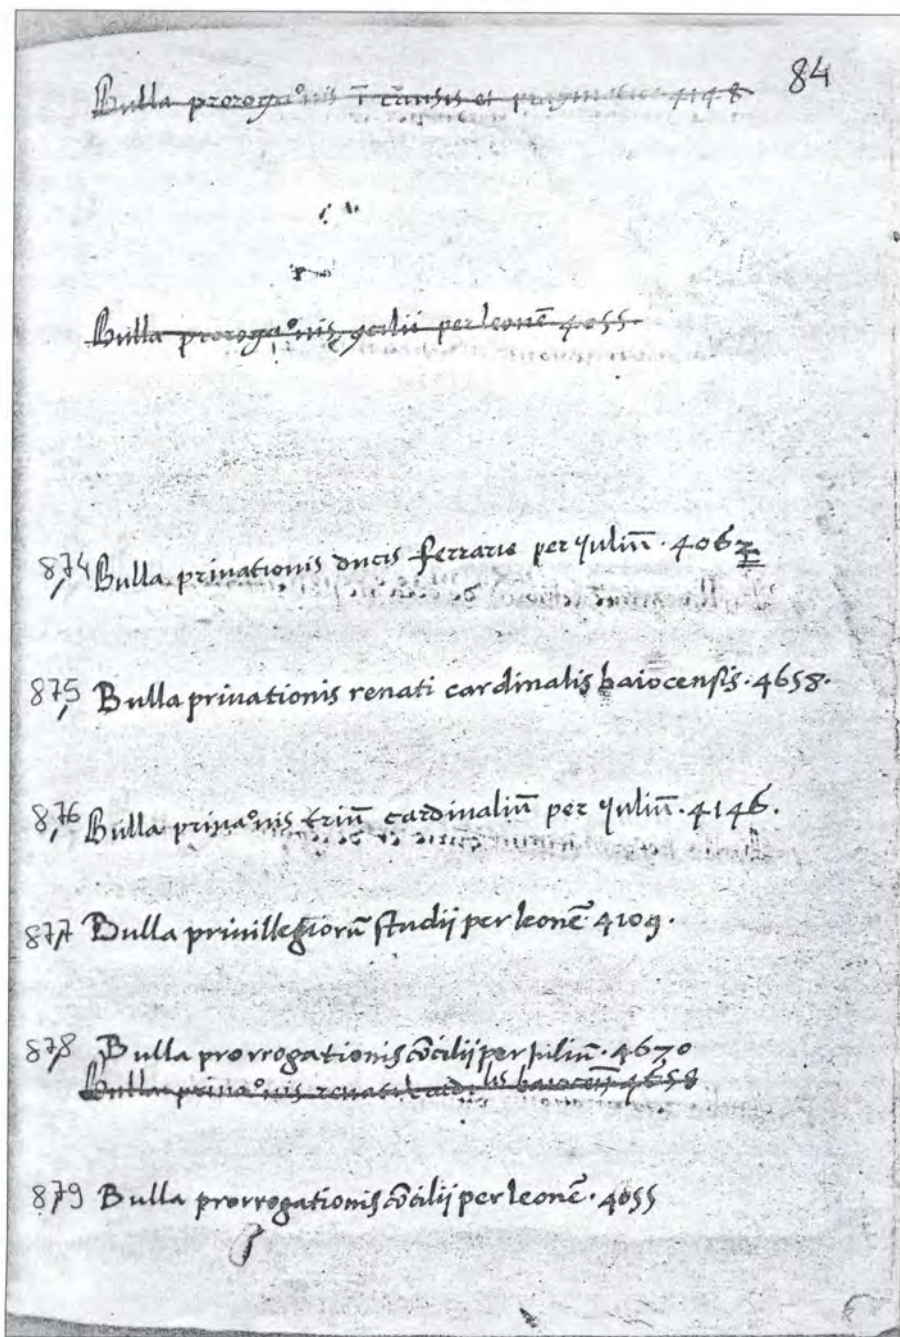 84
Bulla prorogaºnis ī causis et pragmatica 4148
Bulla prorogaºnis ꝯcilii per leonē 4055.
874 Bulla priuationis ducis ferrarie per Juliū · 4067
875 Bulla priuationis renati cardinalis baiocensis · 4658 ·
876 Bulla priuaºnis triū cardinaliū per Juliū · 4146 .
877 Bulla priuillegiorū studij per leonē 4109 ·
878 Bulla prorrogationis cōcilij per juliū · 4670
Bulla priuaºnis renati cardilis baiocen̄ 4658
879 Bulla prorrogationis cōcilij per leonē · 4055